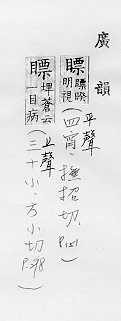 廣韻
瞟 瞟䁾明視 平聲(四宵·撫招切. P.151)
瞟 埤蒼云一目病 上聲(三十小·方小切 P.298)